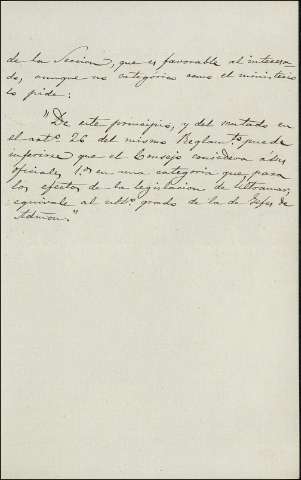 de la Seccion, que es favorable al interesa
do, aunque no categórica como el ministerio
lo pide:
"De este principio, y del mutado en
el artº. 26 del mismo Reglamtº. puede
inferirse que el Consejo considera á sus
oficiales 1.os en una categoria que, para
los efectos de la legislacion de Ultramar,
equivale al ultº. grado de la de Gefes de
Admon."